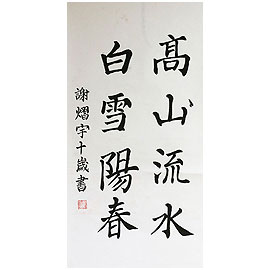 髙山流水
白雪陽春
謝熠宇十歲書